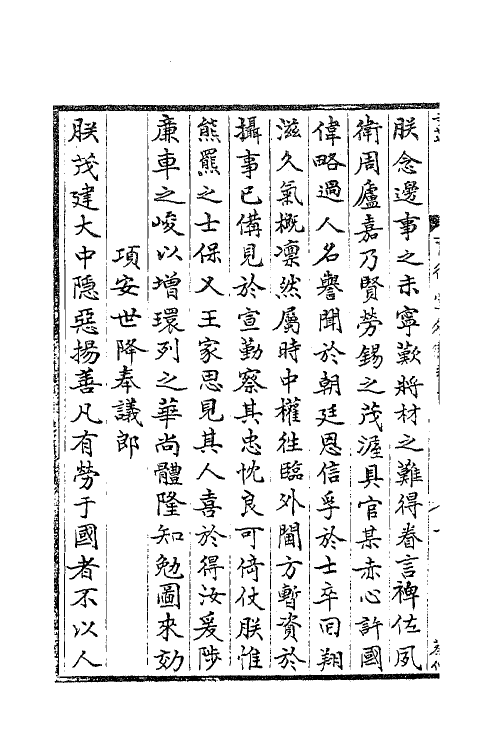 朕念邊事之未寧歎將材之難得眷言裨佐夙
衛周廬嘉乃賢勞錫之茂渥具官某赤心許國
偉略過人名譽聞於朝廷恩信孚於士卒回翔
滋久氣概凛然屬時中權徃臨外閫方暫資於
攝事已備見於宣勤察其忠忱良可倚仗朕惟
熊羆之士保乂王家思見其人喜於得汝爰陟
亷車之峻以增環列之華尚體隆知勉圖來効
項安世降奉議郎
朕茂建大中隱惡揚善凡有勞于國者不以人